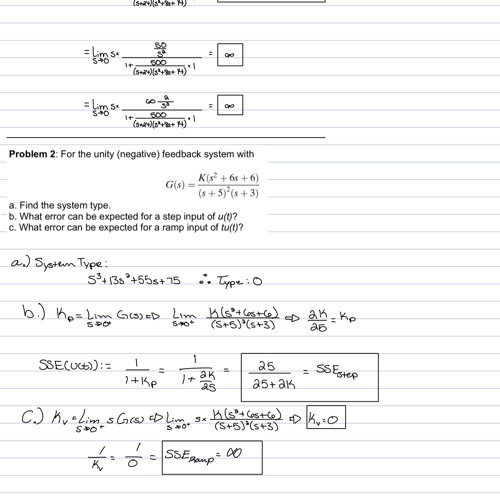 (s+24)(s²+8s+14)
= Lim s→0 s* (50/s²)/(1+500/((s+24)(s²+8s+14))*1) = ∞
= Lim s→0 s* (∞ 2/s³)/(1+500/((s+24)(s²+8s+14))*1) = ∞
Problem 2: For the unity (negative) feedback system with
G(s) = K(s² + 6s + 6)/((s + 5)²(s + 3))
a. Find the system type.
b. What error can be expected for a step input of u(t)?
c. What error can be expected for a ramp input of tu(t)?
a.) System Type:
s³+13s²+55s+75 ∴ Type: 0
b.) Kp = Lim s→0⁺ G(s) ⇒ Lim s→0⁺ K(s²+6s+6)/((s+5)²(s+3)) ⇒ 2K/25 = Kp
SSE(u(t)) := 1/(1+Kp) = 1/(1+2K/25) = 25/(25+2K) = SSE step
C.) Kv = Lim s→0⁺ s G(s) ⇒ Lim s→0⁺ s* K(s²+6s+6)/((s+5)²(s+3)) ⇒ Kv=0
1/Kv = 1/0 = SSE Ramp = ∞